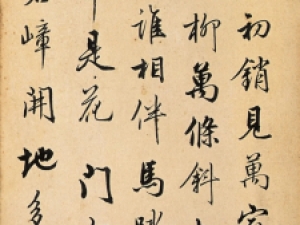 初銷見萬家
柳萬條斜
誰相伴馬蹄
是花門
嶂開地多